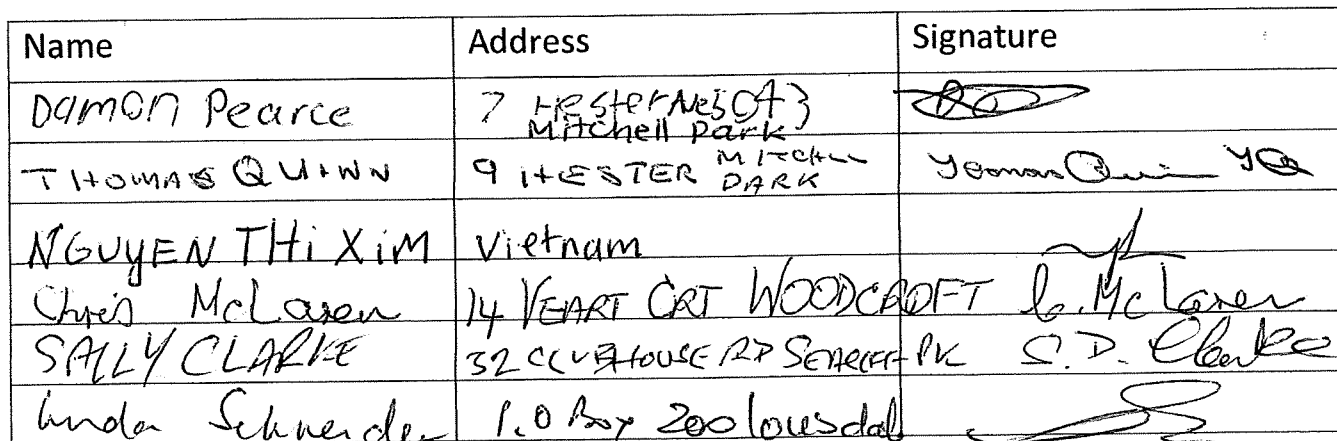 Name Address Signature
Damon Pearce 7 Hester Ne5043
Mitchell Park
THOMAS QUINN 9 HESTER MITCHLL
PARK Thomas Quinn TQ
NGUYEN THi XiM Vietnam
Chris McLaren 14 VEART CRT WOODCROFT C. McLaren
SALLY CLARKE 32 CLUBHOUSE RD SEACLIFF PK S.D. Clarke
Linda Schneider P.O Box 200 lonsdal